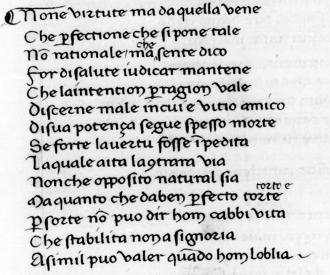 Non e virtute ma da quella vene
Che ꝑfectione che si pone tale
Nō rationale ma che sente dico
For di salute iudicar manten
Che la intention ꝑ ragion vale
Discerne male in cui e vitio amico
Di sua potença segue spesso morte
Se forte la uertu fosse īpedita
La quale aita la ꝯtrara via
Non che opposito natural sia
Ma quanto che da ben ꝑfecto torte
torto e
ꝑ sorte nō puo dir hom cabbi vita
Che stabilita non a signoria
A simil puo valer quādo hom loblia